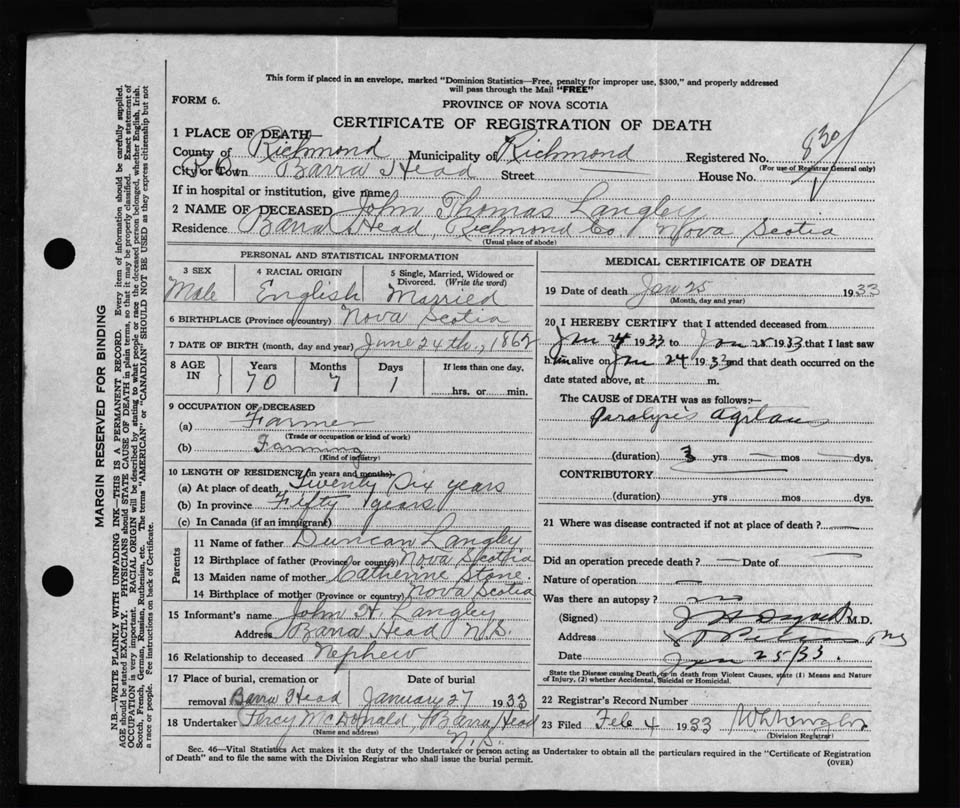 This form if placed in an envelope, marked "Dominion Statistics—Free, penalty for improper use, $300," and properly addressed
will pass through the Mail "FREE"
FORM 6.
PROVINCE OF NOVA SCOTIA
CERTIFICATE OF REGISTRATION OF DEATH
1 PLACE OF DEATH—
County of Richmond Municipality of Richmond Registered No. 830
(For use of Registrar General only)
City or Town Barra Head Street House No.
If in hospital or institution, give name
2 NAME OF DECEASED John Thomas Langley
Residence Barra Head, Richmond Co. Nova Scotia
(Usual place of abode)
PERSONAL AND STATISTICAL INFORMATION
3 SEX 4 RACIAL ORIGIN 5 Single, Married, Widowed or
Divorced. (Write the word)
Male English Married
6 BIRTHPLACE (Province or country) Nova Scotia
7 DATE OF BIRTH (month, day and year) June 24th, 1862
8 AGE IN Years Months Days If less than one day,
70 7 1 hrs. or min.
9 OCCUPATION OF DECEASED
(a) Farmer
(Trade or occupation or kind of work)
(b) Farming
(Kind of industry)
10 LENGTH OF RESIDENCE (in years and months)
(a) At place of death Twenty Six years
(b) In province Fifty years
(c) In Canada (if an immigrant)
Parents
11 Name of father Duncan Langley
12 Birthplace of father (Province or country) Nova Scotia
13 Maiden name of mother Catherine Stone.
14 Birthplace of mother (Province or country) Nova Scotia
15 Informant's name John H. Langley
Address Barra Head N.S.
16 Relationship to deceased Nephew
17 Place of burial, cremation or Date of burial
removal Barra Head January 27 1933
18 Undertaker Percy McDonald, Barra Head
(Name and address) N.S.
MEDICAL CERTIFICATE OF DEATH
19 Date of death Jan 25 1933
(Month, day and year)
20 I HEREBY CERTIFY that I attended deceased from
Jan 24 1933 to Jan 25 1933 that I last saw
him alive on Jan 24 1933 and that death occurred on the
date stated above, at m.
The CAUSE of DEATH was as follows:—
Paralysis Agitans
(duration) 3 yrs — mos — dys.
CONTRIBUTORY
(duration) yrs mos dys.
21 Where was disease contracted if not at place of death? —
Did an operation precede death? — Date of —
Nature of operation —
Was there an autopsy? no
(Signed) M.D.
Address NS
Date Jan 25/33
State the Disease causing Death, or in death from Violent Causes, state (1) Means and Nature
of Injury, (2) whether Accidental, Suicidal or Homicidal.
22 Registrar's Record Number
23 Filed Feb 4 1933
(Division Registrar)
Sec. 46—Vital Statistics Act makes it the duty of the Undertaker or person acting as Undertaker to obtain all the particulars required in the "Certificate of Registration
of Death" and to file the same with the Division Registrar who shall issue the burial permit.
(OVER)
MARGIN RESERVED FOR BINDING
N.B.—WRITE PLAINLY WITH UNFADING INK—THIS IS A PERMANENT RECORD. Every item of information should be carefully supplied.
AGE should be stated EXACTLY. PHYSICIANS should STATE CAUSE OF DEATH in plain terms, so that it may be properly classified. Exact statement of
OCCUPATION is very important. RACIAL ORIGIN will be described by stating to what people or race the deceased person belonged, whether English, Irish,
Scotch, French, German, Russian, Ruthenian, etc. The terms "AMERICAN" or "CANADIAN" SHOULD NOT BE USED as they express citizenship but not
a race or people. Fee instructions on back of Certificate.